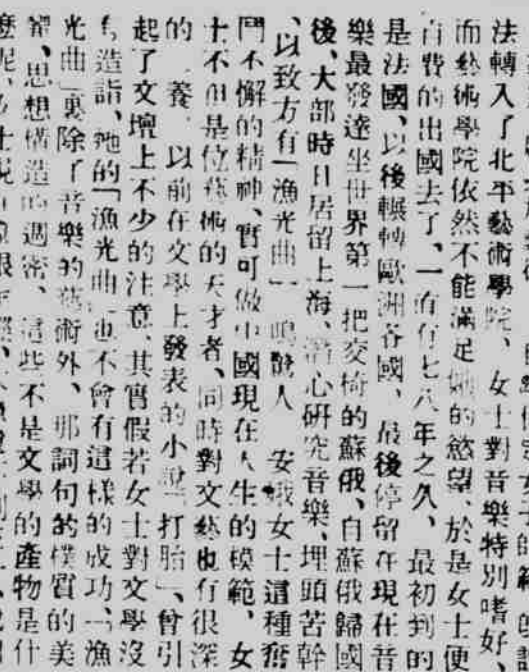 法轉入了北平藝術學院、女士對音樂特別嗜好、
而藝術學院依然不能滿足她的慾望、於是女士便
自費的出國去了、一直有七八年之久、最初到的
是法國、以後輾轉歐洲各國、最後停留在現在音
樂最發達坐世界第一把交椅的蘇俄、自蘇俄歸國
後、大部時日居留上海、潛心研究音樂、埋頭苦幹
、以致方有「漁光曲」一鳴驚人 安娥女士這種奮
鬥不懈的精神、實可做中國現在人生的模範、女
士不但是位藝術的天才者、同時對文藝也有很深
的 養、以前在文學上發表的小說「打胎」、曾引
起了文壇上不少的注意、其實假若女士對文學沒
造詣、她的「漁光曲」也不會有這樣的成功、「漁
光曲」裏除了音樂的藝術外、那詞句的樸質的美
、思想構造的週密、這些不是文學的產物是什
麼呢、女士